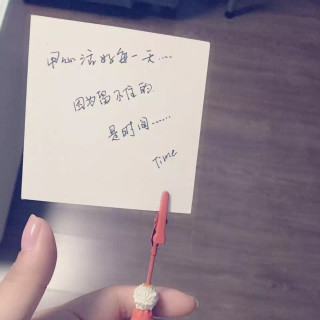 用心活好每一天……
因为留不住的
是时间……
Time